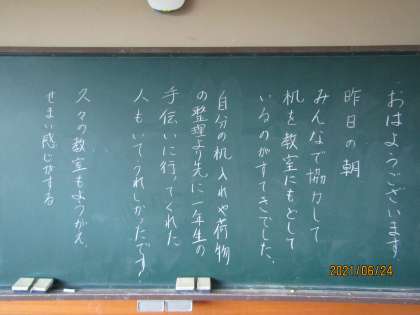 おはようございます
昨日の朝
みんなで協力して
机を教室にもどして
いるのがすてきでした。
自分の机入れや荷物
の整理より先に一年生の
手伝いに行ってくれた
人もいてうれしかったです
久々の教室
せまい感じがする
2021/06/24